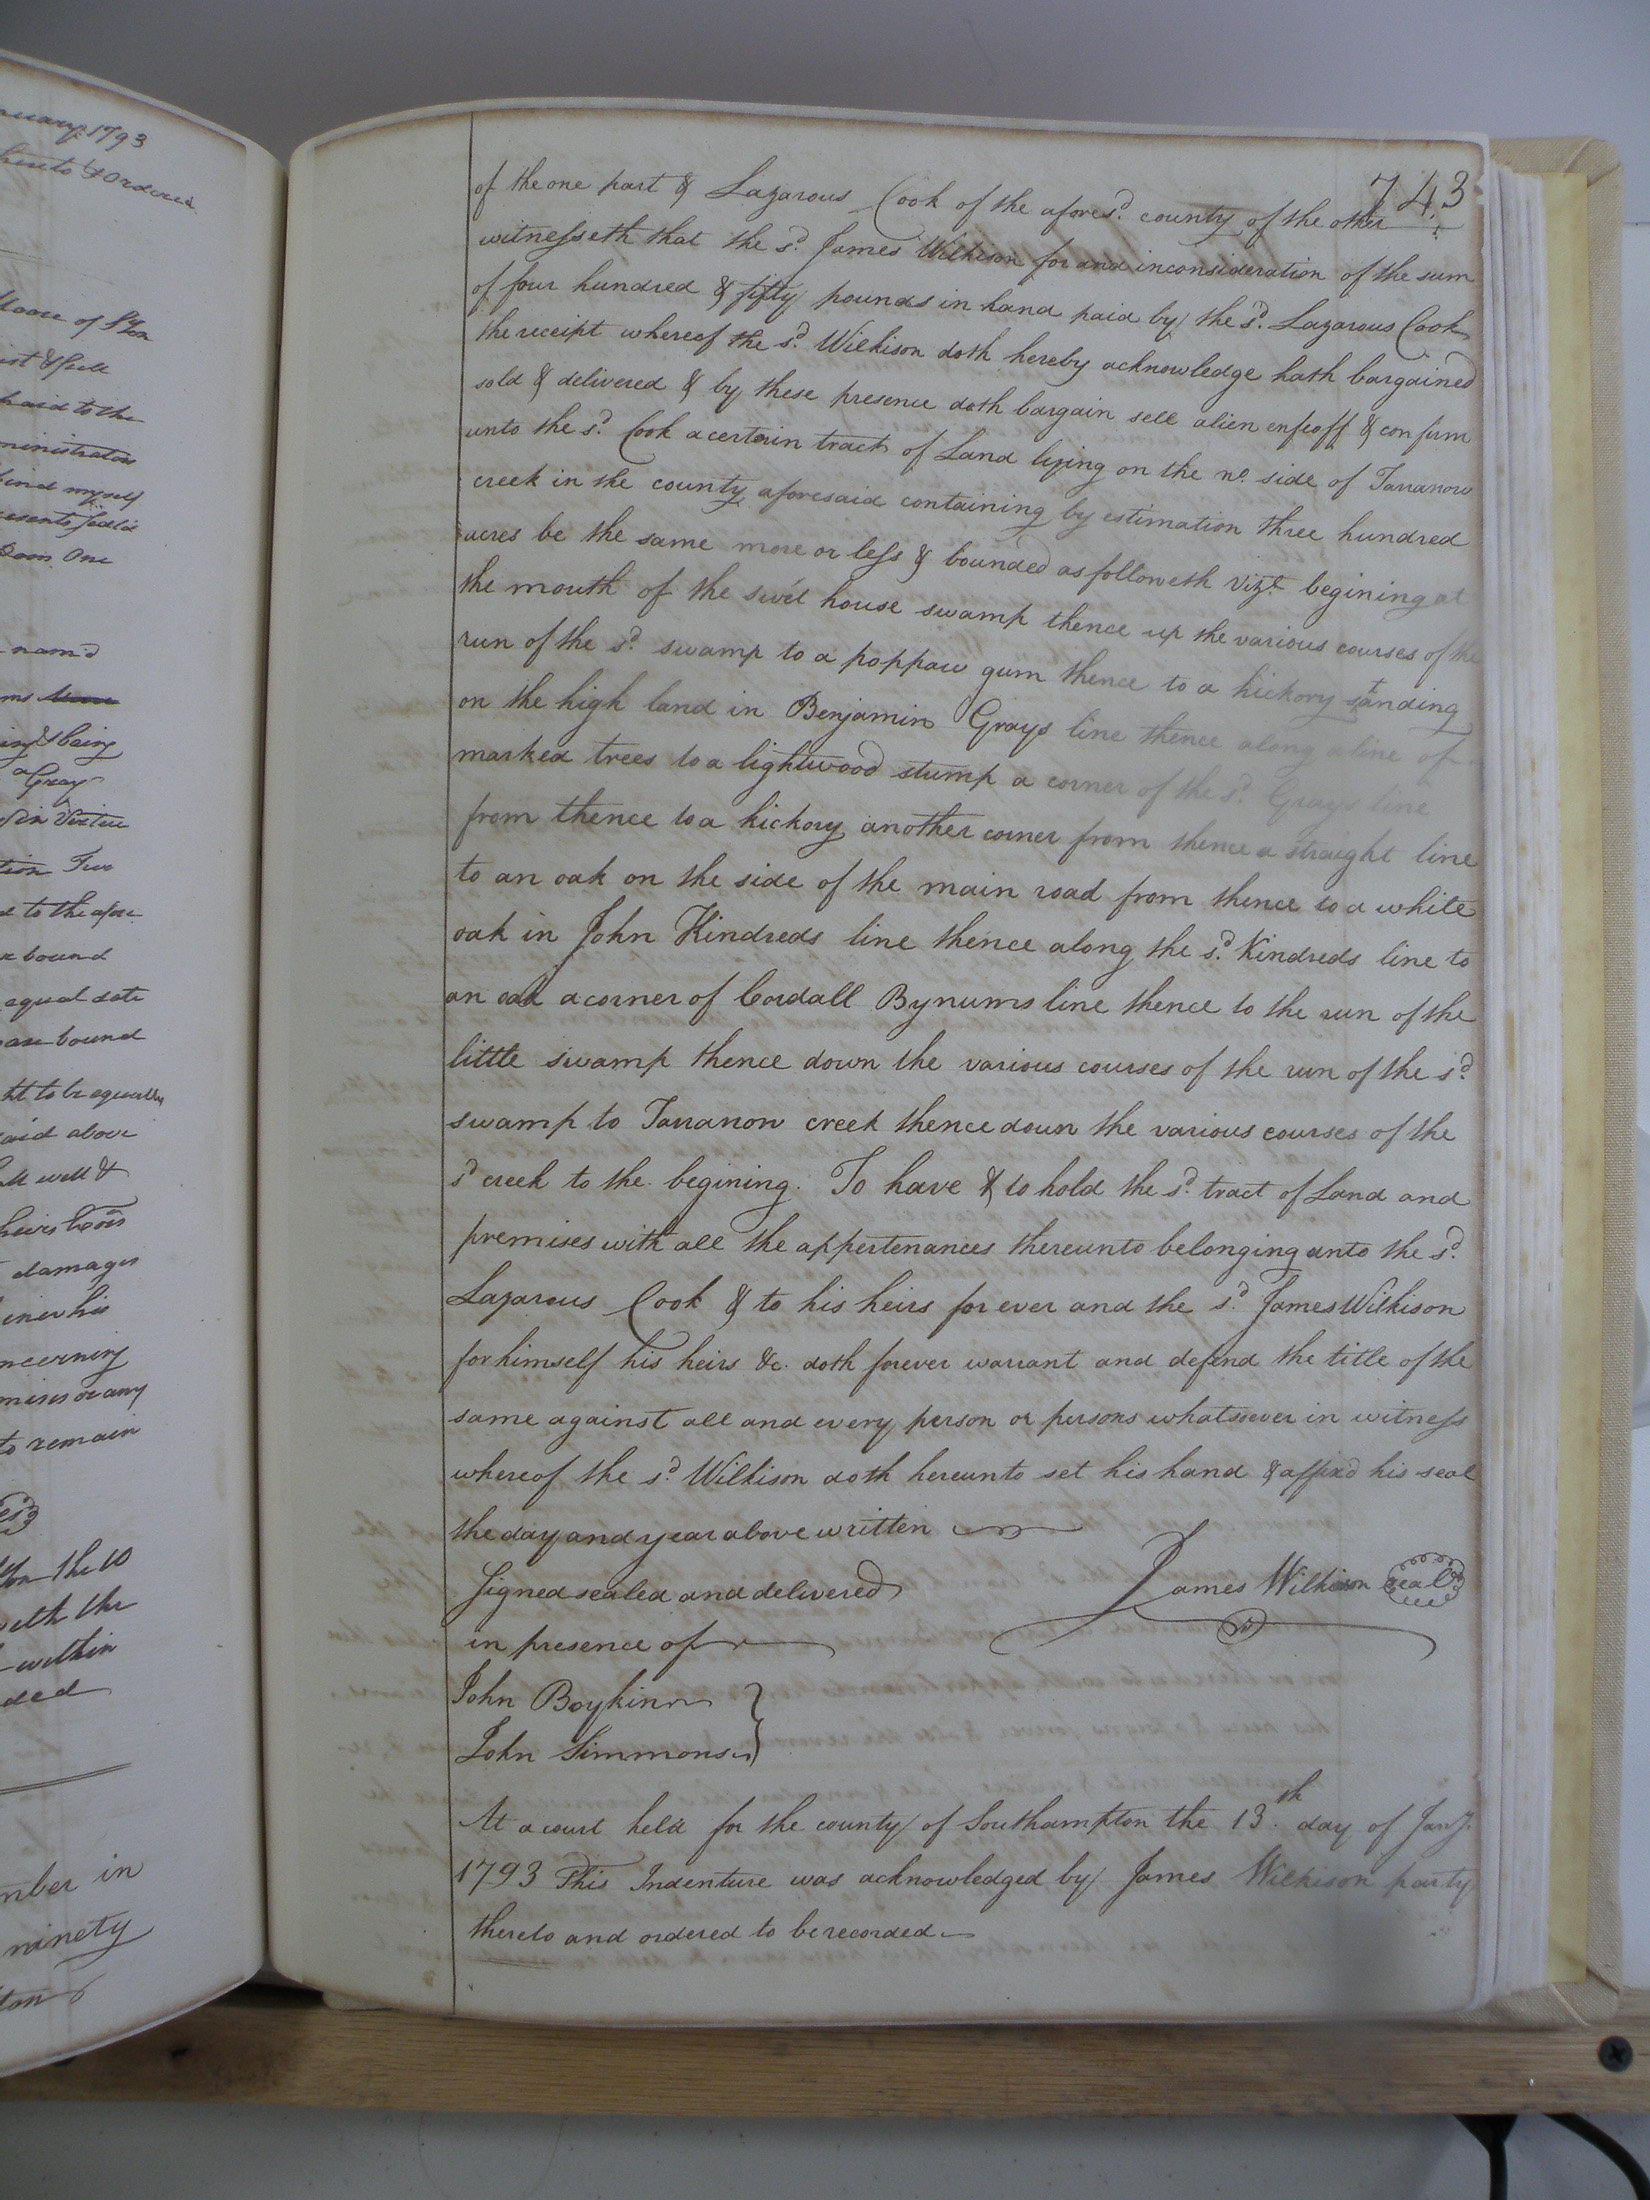 nuary 1793
hereto & Ordered
Moore of S'ton
ist & full
paid to the
ministrators
bind myself
esents seal'd
Dom One
nam'd
ms
ing & being
Gray
tion Two
d to the afore
bound
equal date
are bound
ht to be equally
aid above
ll well &
heirs
damages
iner his
ncerning
mises or any
to remain
the 10
with the
within
ded
mber in
ninety
ton
743
of the one part & Lazarous Cook of the afores.d county of the other
witnesseth that the s.d James Wilkison for and inconsideration of the sum
of four hundred & fifty pounds in hand paid by the s.d Lazarous Cook
the receipt whereof the s.d Wilkison doth hereby acknowledge hath bargained
sold & delivered & by these presence doth bargain sell alien enfeoff & confirm
unto the s.d Cook a certain tract of Land lying on the no. side of Tarranow
creek in the county aforesaid containing by estimation three hundred
acres be the same more or less & bounded as followeth Vizt. begining at
the mouth of the house swamp thence up the various courses of the
run of the s.d swamp to a poppaw gum thence to a hickory standing
on the high land in Benjamin Grays line thence along a line of
marked trees to a lightwood stump a corner of the s.d Grays line
from thence to a hickory another corner from thence a straight line
to an oak on the side of the main road from thence to a white
oak in John Kindreds line thence along the s.d Kindreds line to
an oak a corner of Cordall Bynums line thence to the run of the
little swamp thence down the various courses of the run of the s.d
swamp to Tarranow creek thence down the various courses of the
s.d creek to the begining. To have & to hold the s.d tract of Land and
premises with all the appertenances thereunto belonging unto the s.d
Lazarous Cook & to his heirs for ever and the s.d James Wilkison
for himself his heirs &c. doth forever warrant and defend the title of the
same against all and every person or persons whatsoever in witness
whereof the s.d Wilkison doth hereunto set his hand & affix'd his seal
the day and year above written
Signed sealed and delivered James Wilkison seal
in presence of
John Boykin
John Simmons
At a court held for the county of Southampton the 13.th day of Jany.
1793 This Indenture was acknowledged by James Wilkison party
thereto and ordered to be recorded